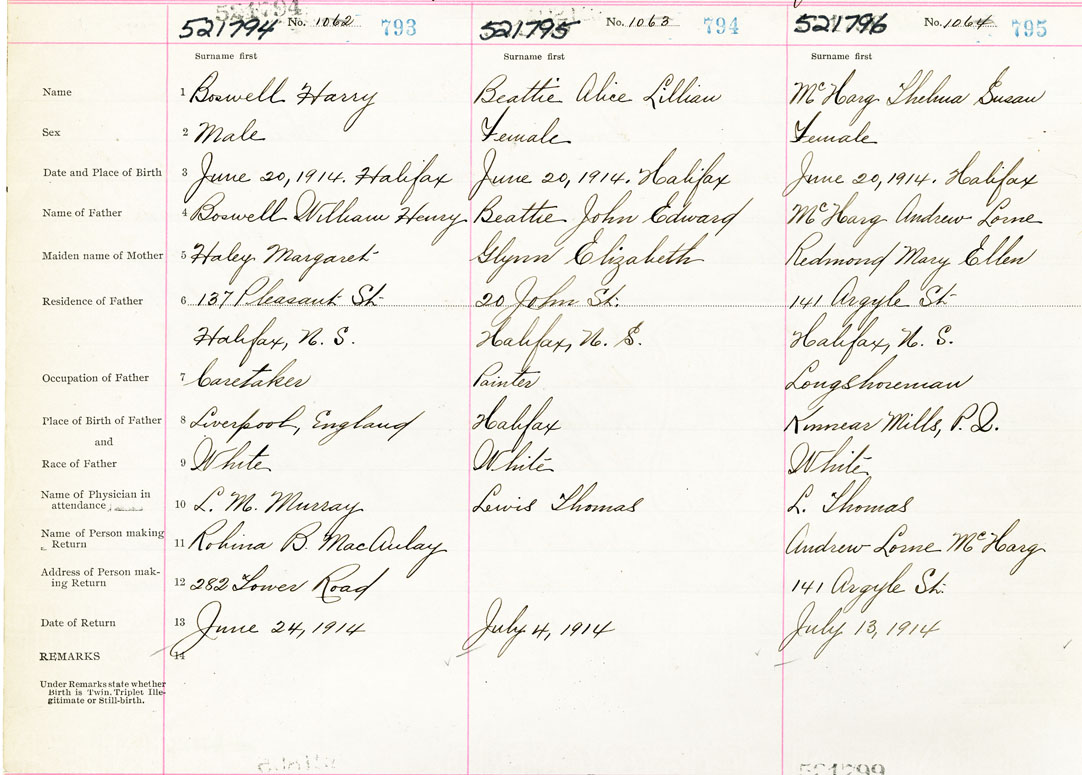 521794 No. 1062 793 521795 No. 1063 794 521796 No. 1064 795
Surname first Surname first Surname first
Name 1 Boswell Harry Beattie Alice Lillian McHarg Thelma Susan
Sex 2 Male Female Female
Date and Place of Birth 3 June 20, 1914. Halifax June 20, 1914. Halifax June 20, 1914. Halifax
Name of Father 4 Boswell William Henry Beattie John Edward McHarg Andrew Lorne
Maiden name of Mother 5 Haley Margaret Glynn Elizabeth Redmond Mary Ellen
Residence of Father 6 137 Pleasant St. 20 John St. 141 Argyle St.
Halifax, N. S. Halifax, N. S. Halifax, N. S.
Occupation of Father 7 Caretaker Painter Longshoreman
Place of Birth of Father 8 Liverpool, England Halifax Kinnear Mills, P. Q.
and
Race of Father 9 White White White
Name of Physician in
attendance 10 L. M. Murray Lewis Thomas L. Thomas
Name of Person making
Return 11 Robina B. MacAulay Andrew Lorne McHarg
Address of Person mak-
ing Return 12 282 Tower Road 141 Argyle St.
Date of Return 13 June 24, 1914 July 4, 1914 July 13, 1914
REMARKS 14
Under Remarks state whether
Birth is Twin. Triplet Ille-
gitimate or Still-birth.
521799